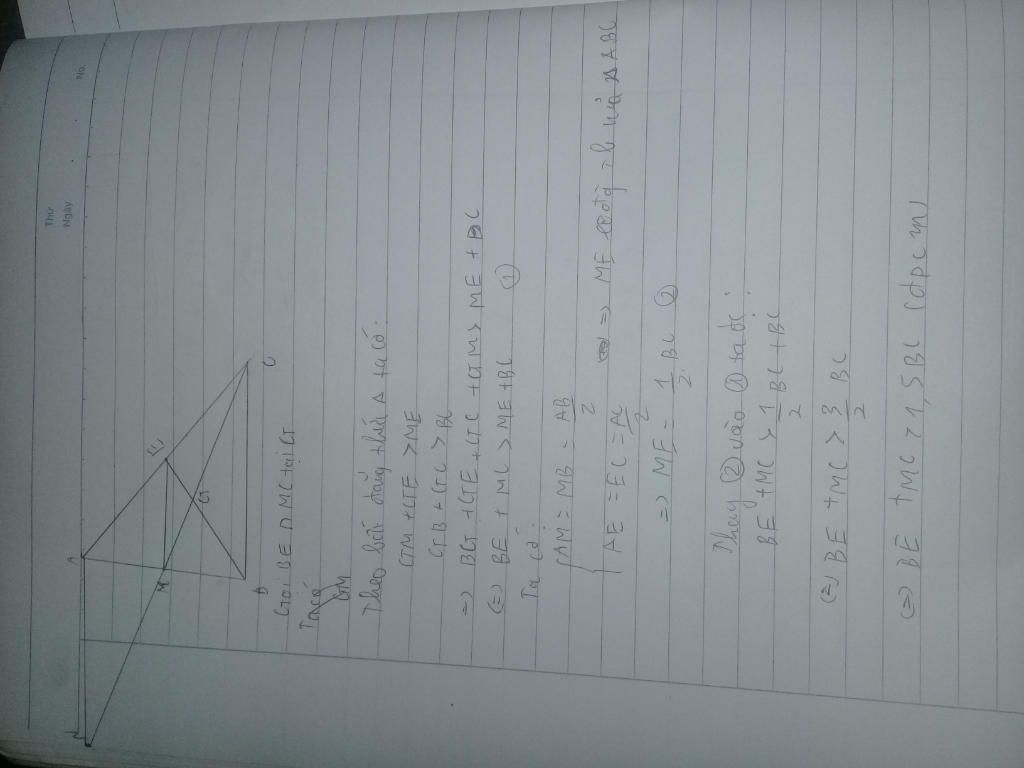 No.
Thứ
Ngày
A
E
M
G
B
C
Gọi BE ∩ MC tại G
Ta có
Theo bất đẳng thức Δ ta có:
GM + GE > ME
GB + GC > BC
=> BG + GE + GC + GM > ME + BC
(=) BE + MC > ME + BC ①
Ta có:
{ AM = MB = AB/2
AE = EC = AC/2 => ME Δ ABC
=> ME = 1/2 BC ②
Thay ② vào ① ta đc:
BE + MC > 1/2 BC + BC
(=) BE + MC > 3/2 BC
(=) BE + MC > 1,5 BC (đpcm)